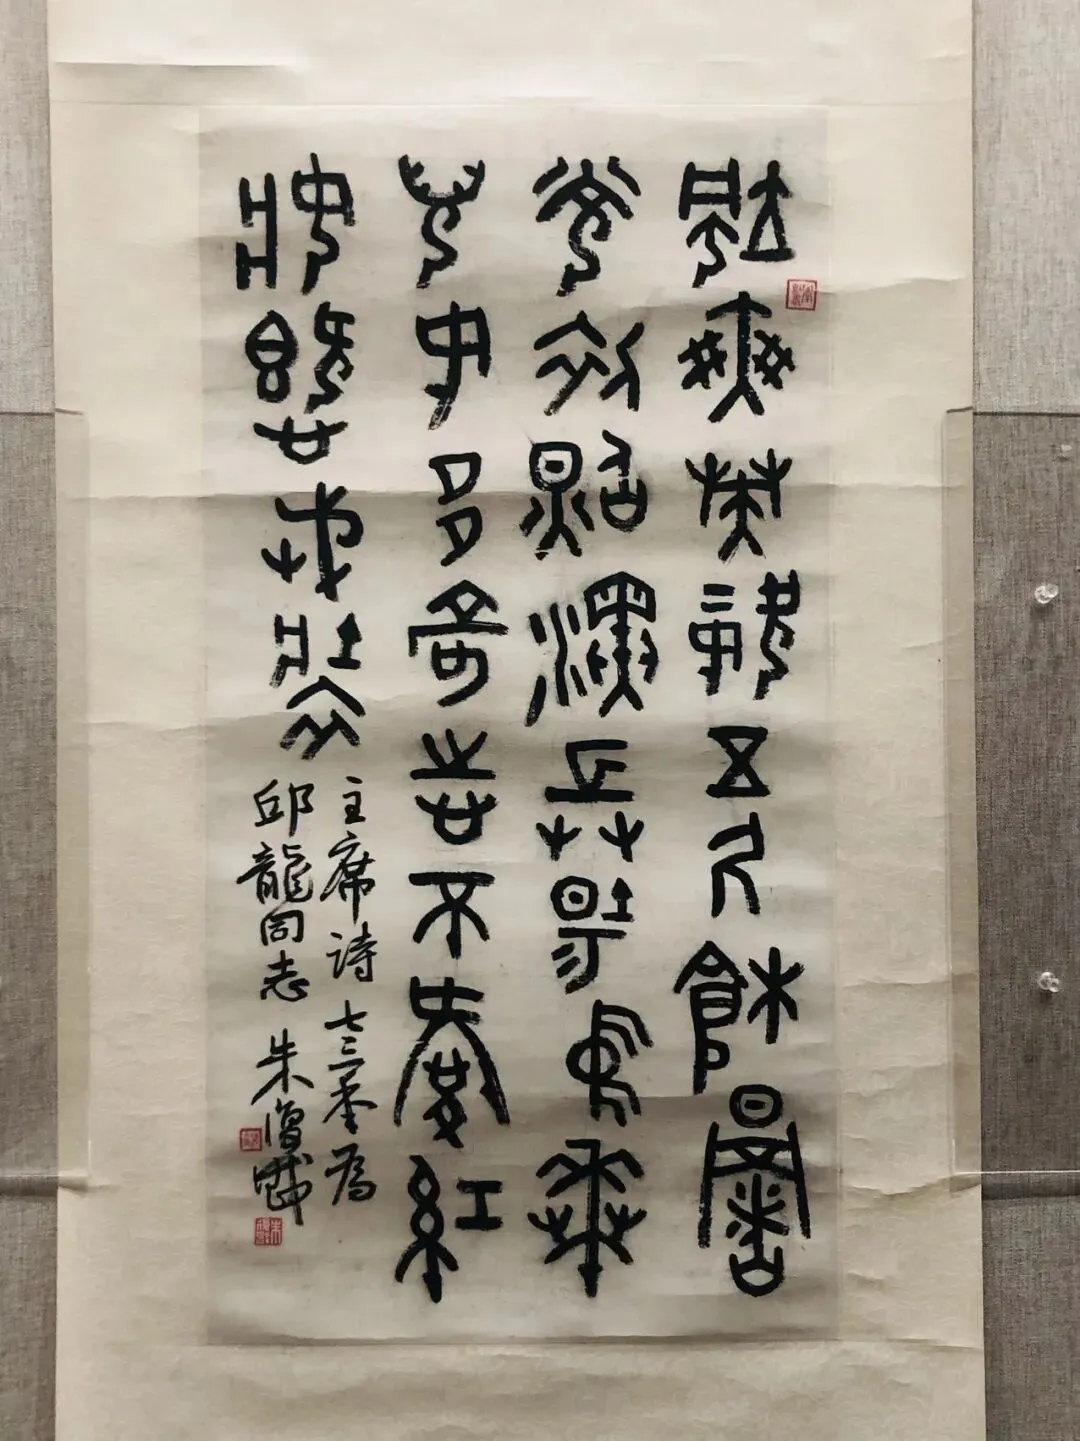 颯爽英姿五尺槍曙
光初照演兵場中華
兒女多奇志不愛紅
裝愛武裝
主席詩 七三年為
邱龍同志 朱復戡